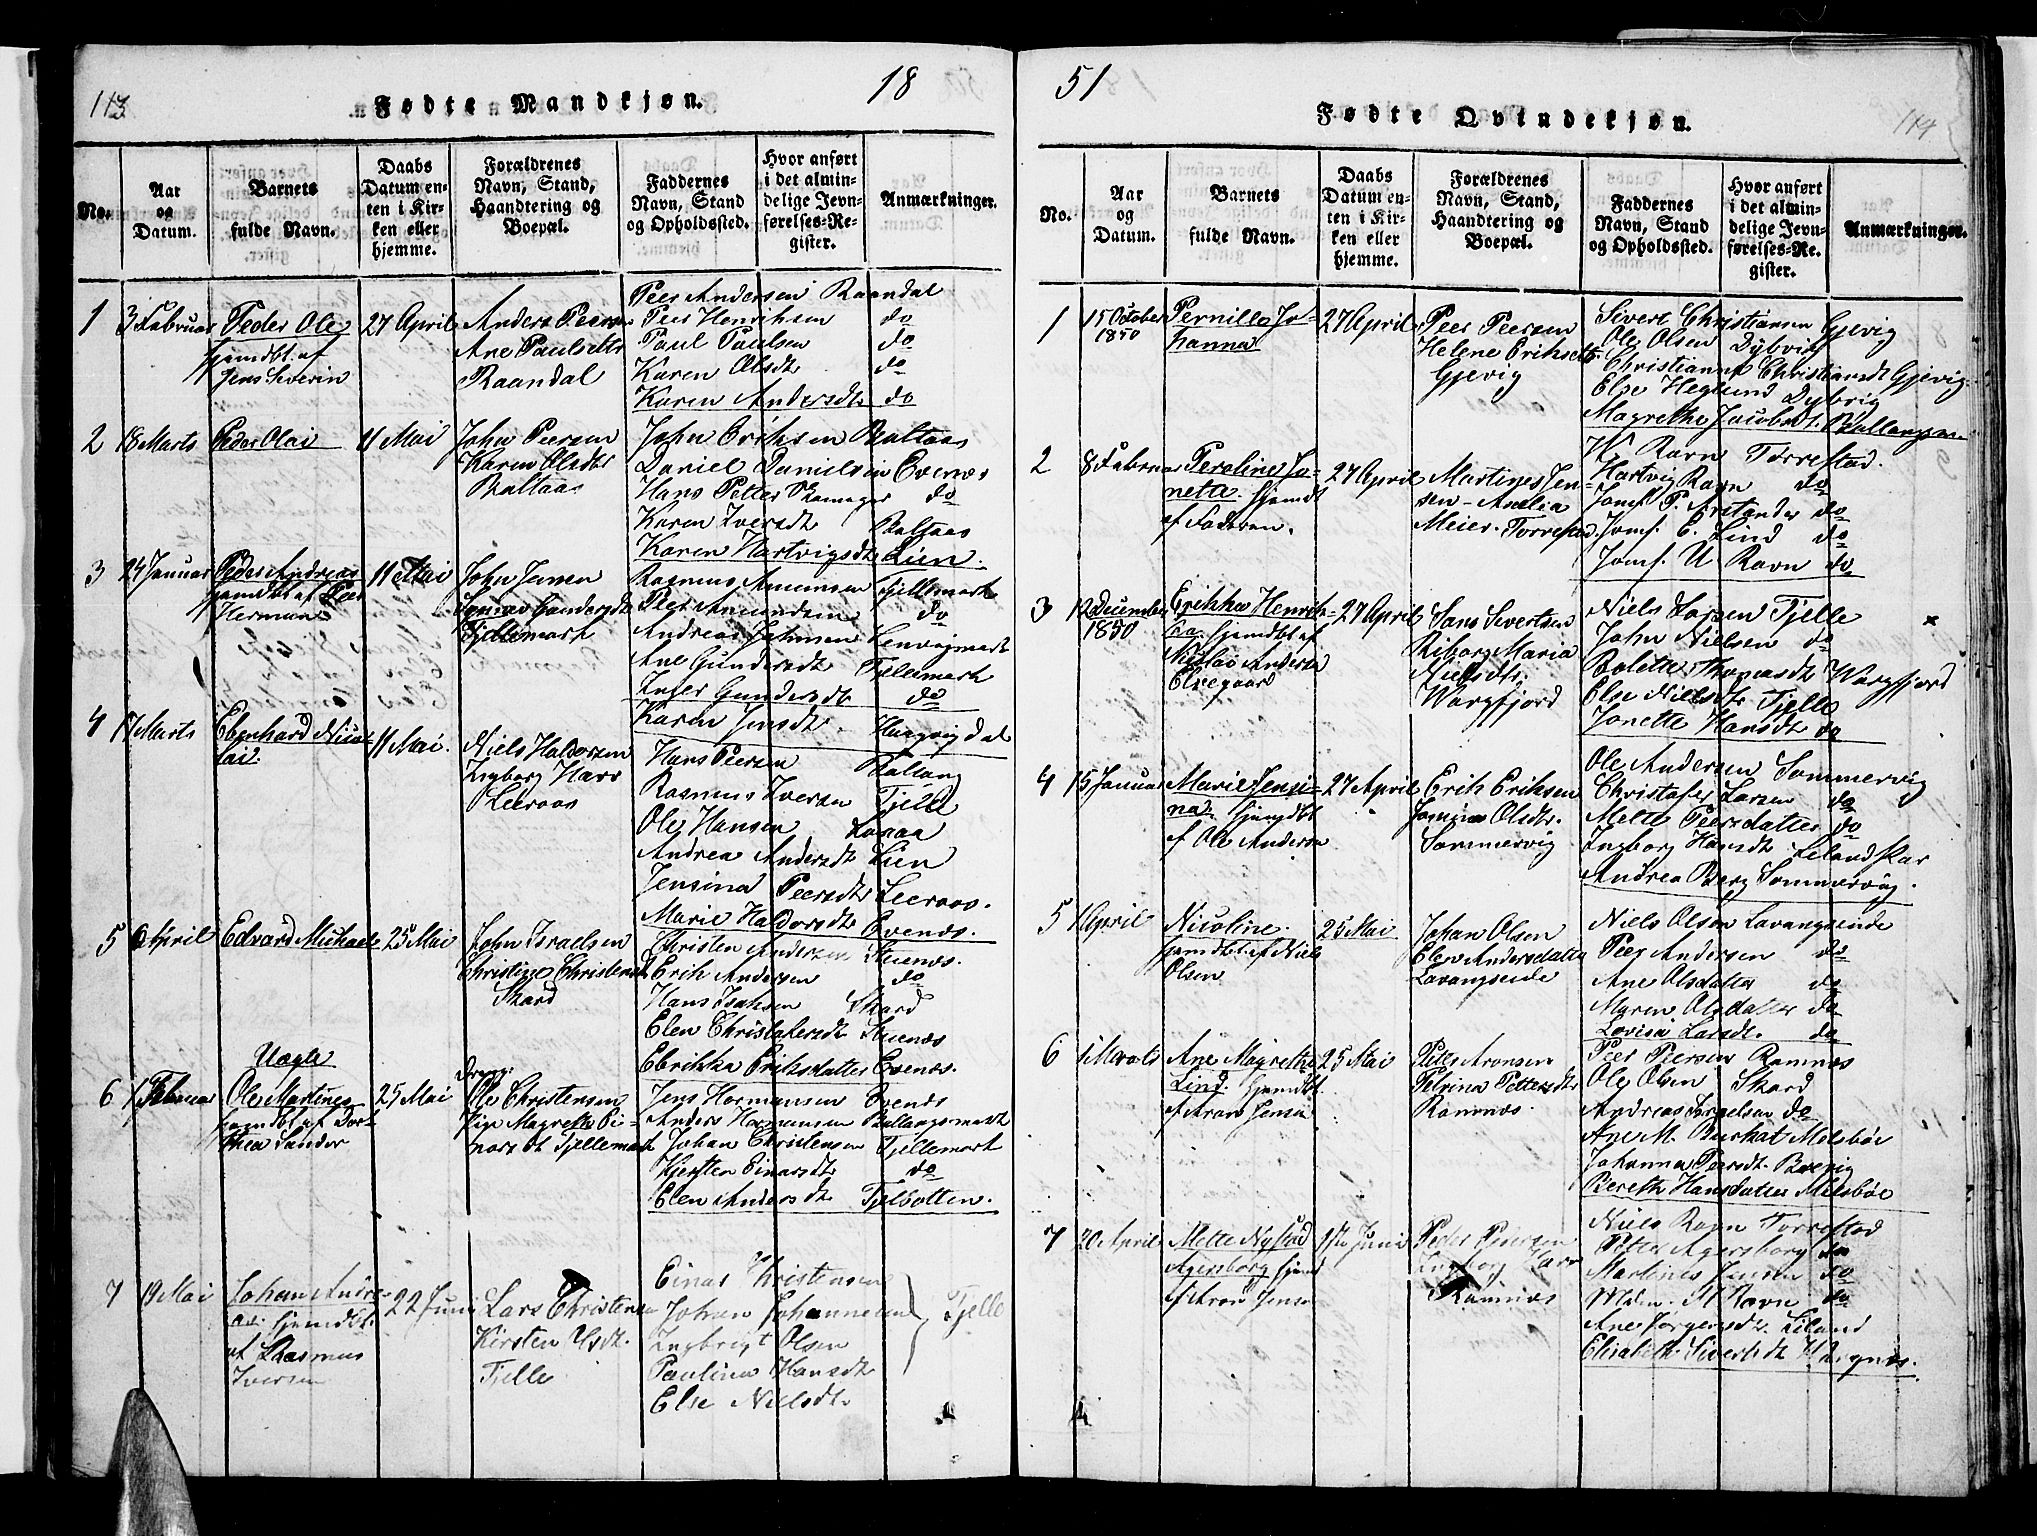 113
Fødte Mandkjøn.
18
No.
Aar og Datum.
Barnets fulde Navn.
Daabs Datum enten i Kirken eller hjemme.
Forældrenes Navn, Stand, Haandtering og Boepæl.
Faddernes Navn, Stand og Opholdssted.
Hvor anført i det almindelige Jevnførelses-Register.
Anmærkninger.
1
3 Februar
Peder Ole
hjemdbt. af
Jens Severin
27 April
Anders Peersen
Ane Paulsdtr
Raandal
Peer Andersen Raandal
Peer Henriksen do
Paul Paulsen do
Karen Olsdtr do
Karen Andersdtr do
2
18 Marts
Peder Olai
11 Mai
John Peersen
Karen Olsdtr
Baltaas
John Eriksen Baltaas
Daniel Danielsen Evenæs
Hans Petter do
Karen Iversdtr Baltaas
Karen Hartvigsdtr Lien.
3
24 Januar
Peder Andreas
hjemdbt. af Peer
Herman
11 Mai
John Jensen
Gundersdtr
Fjellemark
Rasmus Amundsen Fjellemark
Peer Amundsen do
Andreas Johnsen
Ane Gundersdtr Fjellemark
Inger Gundersdtr do
4
17 Marts
Ebenhard Nicolai
11 Mai.
Niels Haldorsen
Ingborg
Leeraas
Karen Jensdtr.
Hans Peersen Ballang
Rasmus Iversen Fjelle
Ole Hansen
Andrea Andersdtr Lien
Jensina Peersdtr Leeraas.
Marie Haldorsdtr Evenæs.
5
April
Edvard Michael
25 Mai
John Israelsen
Christine Christensdtr
Skard
Christen Andersen
Erik Andersen do
Hans Isaksen Skard
Elen
Ebrikka Eriksdatter Evenæs.
6
1 Februar
Uægte
Ole Martines
hjemdbt af
25 Mai
Ole Christensen
Pige Magrethe
Fjellemark
Jens Hermansen Evenæs
Anders Hermansen Ballangsmark
Johan Christensen Fjellemark
Kjersten Einarsdtr do
Elen Andersdtr Fjelbotten.
7
19 Mai
Johan Andreas.
hjemdbt.
af Rasmus
Iversen
22 Juni
Lars Christensen
Kirsten Olsdt.
Fjelle
Einar Christensen
Johan Johannesen Fjelle
Ingbrigt Olsen
Paulina Hansdtr
Else Nielsdtr.
51
Fødte Qvindekjøn.
114
No.
Aar og Datum.
Barnets fulde Navn.
Daabs Datum enten i Kirken eller hjemme.
Forældrenes Navn, Stand, Haandtering og Boepæl.
Faddernes Navn, Stand og Opholdssted.
Hvor anført i det almindelige Jevnførelses-Register.
Anmærkninger.
1
15 October
1850
Pernille Johanna
27 April
Peer Peersen
Helene Eriksdtr.
Gjevig
Sivert Christiansen Gjevig
Ole Olsen Dybvig
Christianna Christiansdt Gjevig
Else Heglund Dybvig
Magrethe Jacobsdt. Ballangen
2
8 Februar
Peroline Jonetta. hjemdt
af Faderen.
27 April
Martines Jensen - Amalia
Meier. Torrestad
K. Ravn Torrestad.
Hartvig Ravn do
Jomf. P. do
Jomf. E. Lind do
Jomf. U Ravn do
3
12 December
1850
Erikka Henrikka. hjemdbt. af
Nicolai Anderson
Elvegaard
27 April
Hans Sivertsen
Riborg Maria
Nielsdtr.
Wargfjord
Niels Larsen Fjelle
John Nielsen do
Bolette Thomasdt Wargfjord
Else Nielsdtr Fjelle
Jonetta Hansdt do
4
15 Januar
Marie Jensina. hjemdbt
af Ole Andersen
27 April
Erik Eriksen
Olsdtr.
Sommervig
Ole Andersen Sommervig
Christofer Larsen do
Mette Peersdatter do
Ingborg Hansdt. Lelandskar
Andrea Berg Sommervig.
5
1 April
Nicoline.
hjemdbt. af Niels
Olsen
25 Mai
Johan Olsen
Elen Andersdatter
Lavangseide
Niels Olsen Lavangseide
Peer Andersen do
Ane Olsdatter do
Maren Olsdatter do
Lovisa Larsdt. do
6
1 Marts
Ane Magrethe
Lind. hjemdbt.
af Aron Jensen
25 Mai
Petter Aronsen
Petrina Pettersdtr
Ramnæs.
Peer Peersen Ramnæs
Ole Olsen Skard
Andreas Israelsen do
Ane M. Burkat Melsbøe
Johanna Peersdt.
Bereth Hansdatter Melsbøe
7
20 April
Mette Nystad
Agersborg hjemd
af Aron Jensen
Juni
Peder Pedersen
Ingborg
Ramnæs
Niels Ravn Torrestad
Petter Agersborg do
Martines Jensen do
Mdm. M Ravn do
Ane Jørgensdtr. Liland
Elisabeth Sivertsdt